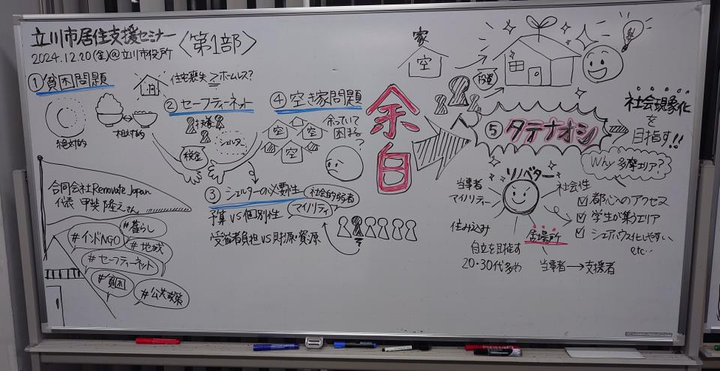 立川市居住支援セミナー
〈第1部〉
2024.12.20(金)@立川市役所
①貧困問題
住宅喪失＞ホームレス?
絶対的
相対的
②セーフティーネット
扶養
税金
シェルター
③シェルターの必要性
社会的弱者
マイノリティ
予算 VS 個別性
受益者負担 VS 財源・資源
④空き家問題
空
空
空
余っていて
困まる
?
合同会社Renovate Japan
代表 甲斐隆之さん
#暮らし
#インドNGO
#地域
#セーフティーネット
#貧困
#公共政策
余白
家
空
⑤タテナオシ
社会現象化
を目指す!!
リノベター
当事者
マイノリティー
社会性
住み込み
居場所
自立を目指す
20・30代多め
当事者→支援者
Why 多摩エリア?
☑ 都心へのアクセス
☑ 学生が集うエリア
☑ シェアハウス化しやすい
etc…